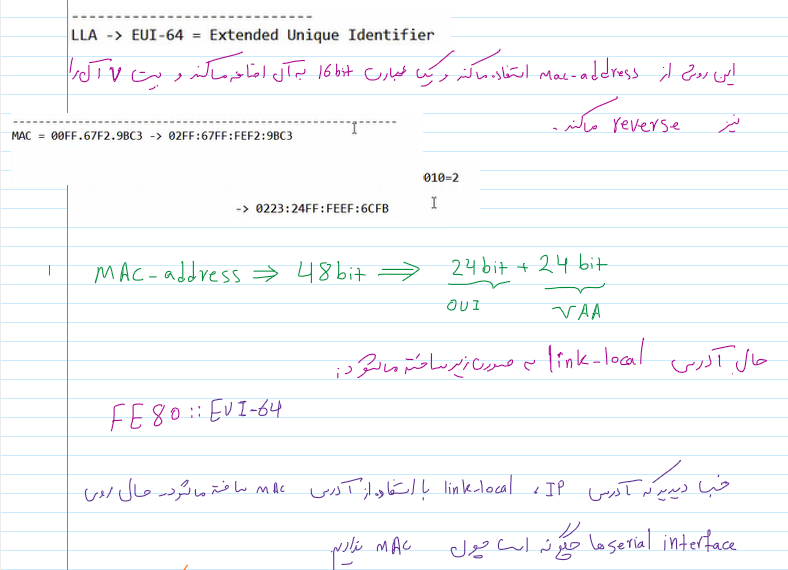 LLA -> EUI-64 = Extended Unique Identifier
این روش از Mac-address استفاده میکند و یک عبارت 16bit به آن اضافه میکند و بیت 7 آن را
نیز reverse میکند.
MAC = 00FF.67F2.9BC3 -> 02FF:67FF:FEF2:9BC3
010=2
-> 0223:24FF:FEEF:6CFB
MAC-address ⇒ 48bit ⇒ 24bit + 24bit
OUI VAA
حال آدرس link-local به صورت زیر ساخته میشود:
FE80::EUI-64
دیدید که آدرس IP، link-local با استفاده از آدرس MAC ساخته میشود. حال روی
serial interface ها چگونه است چون MAC نداریم